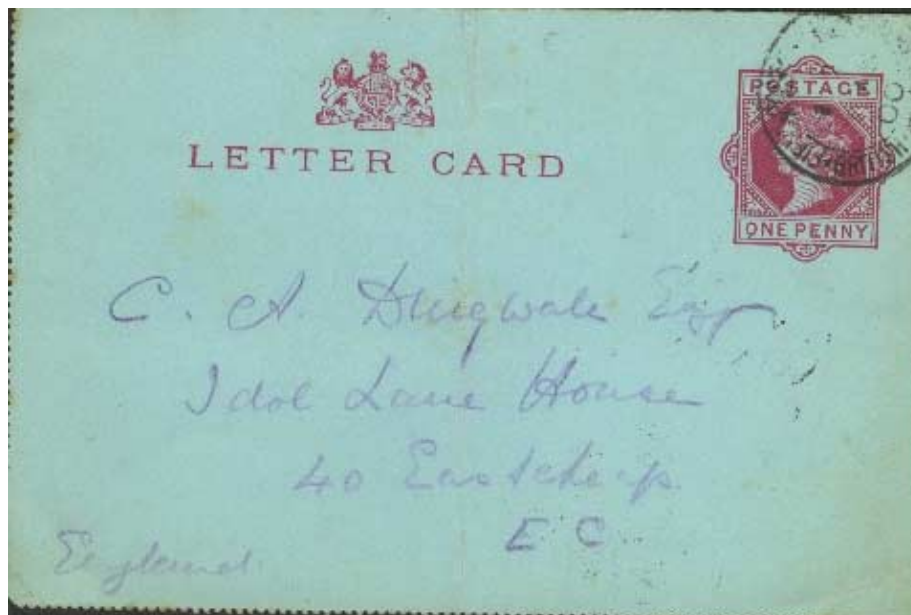 LETTER CARD
POSTAGE
ONE PENNY
C. A. Dingwall Esq
Idol Lane House
40 Eastcheap
E C
England